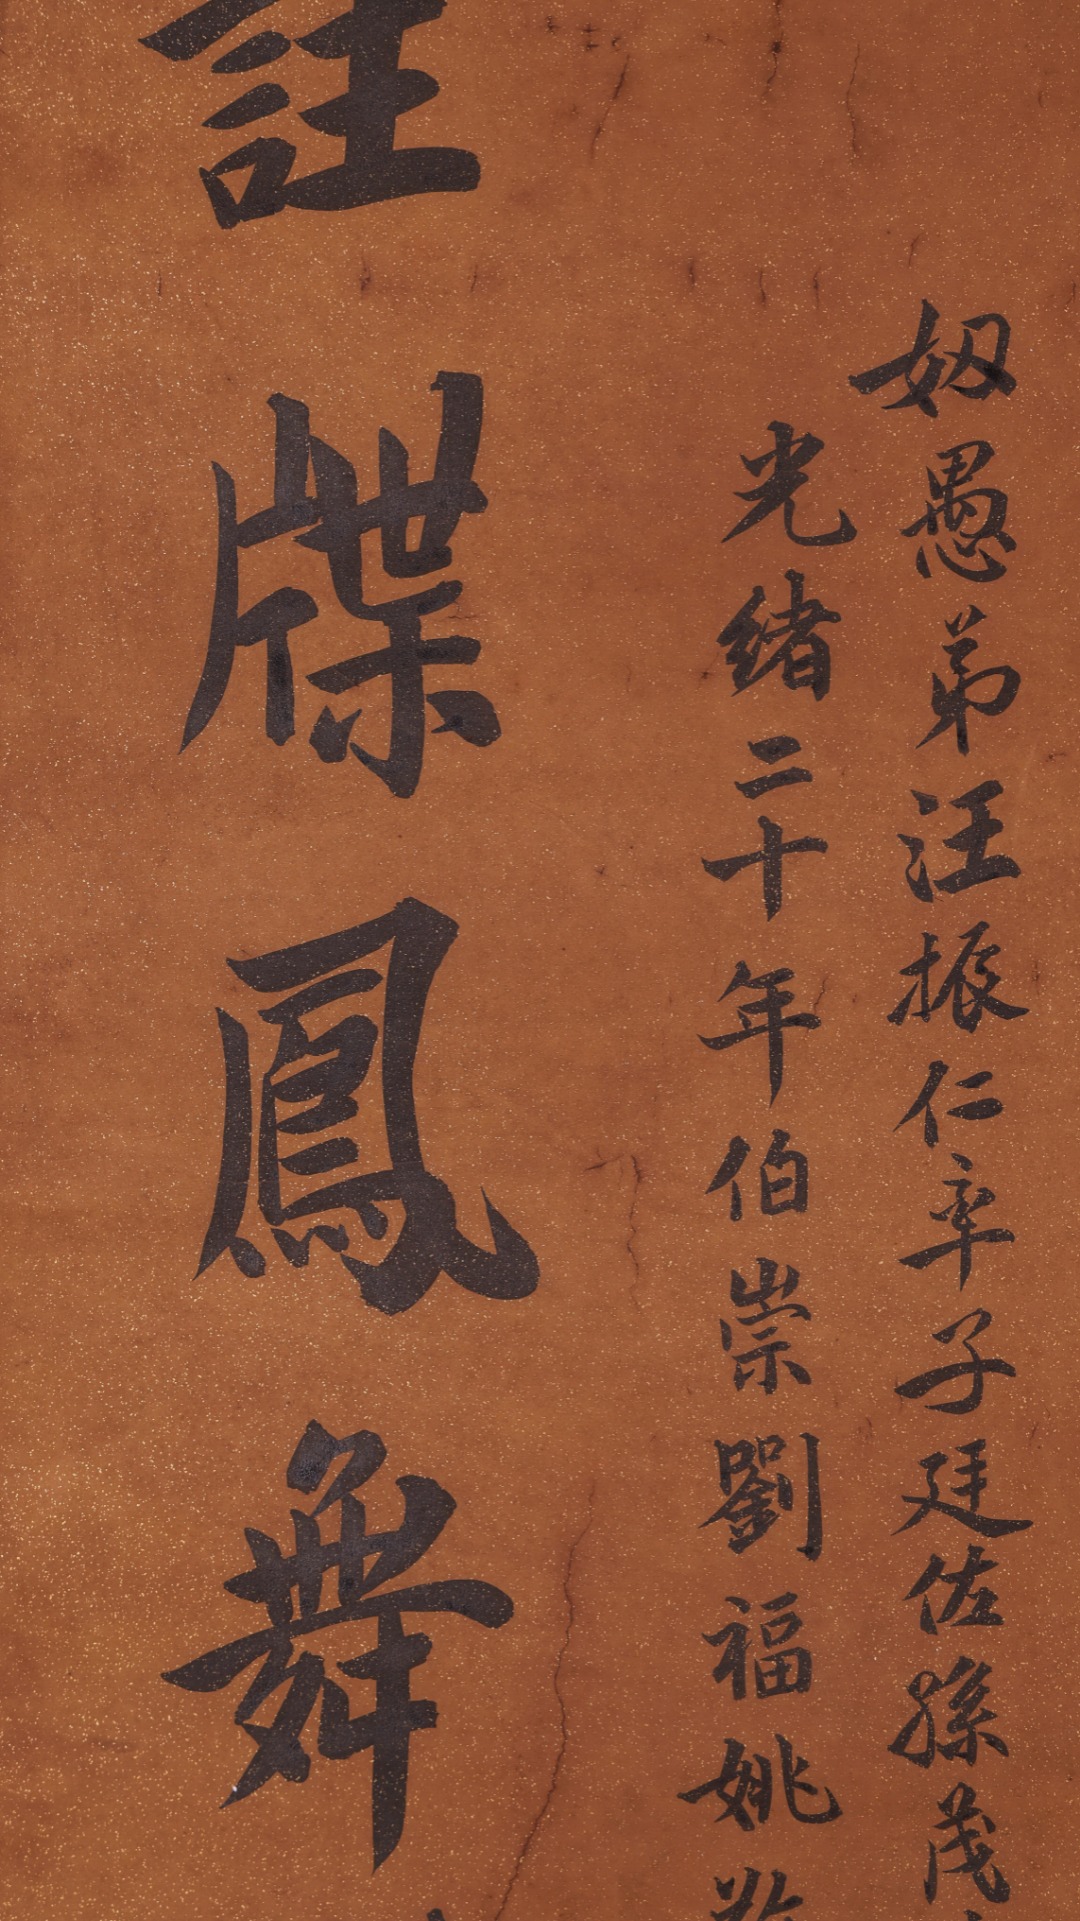 愚弟汪振仁率子廷佐孫茂
光緒二十年伯崇劉福姚
註牒鳳舞